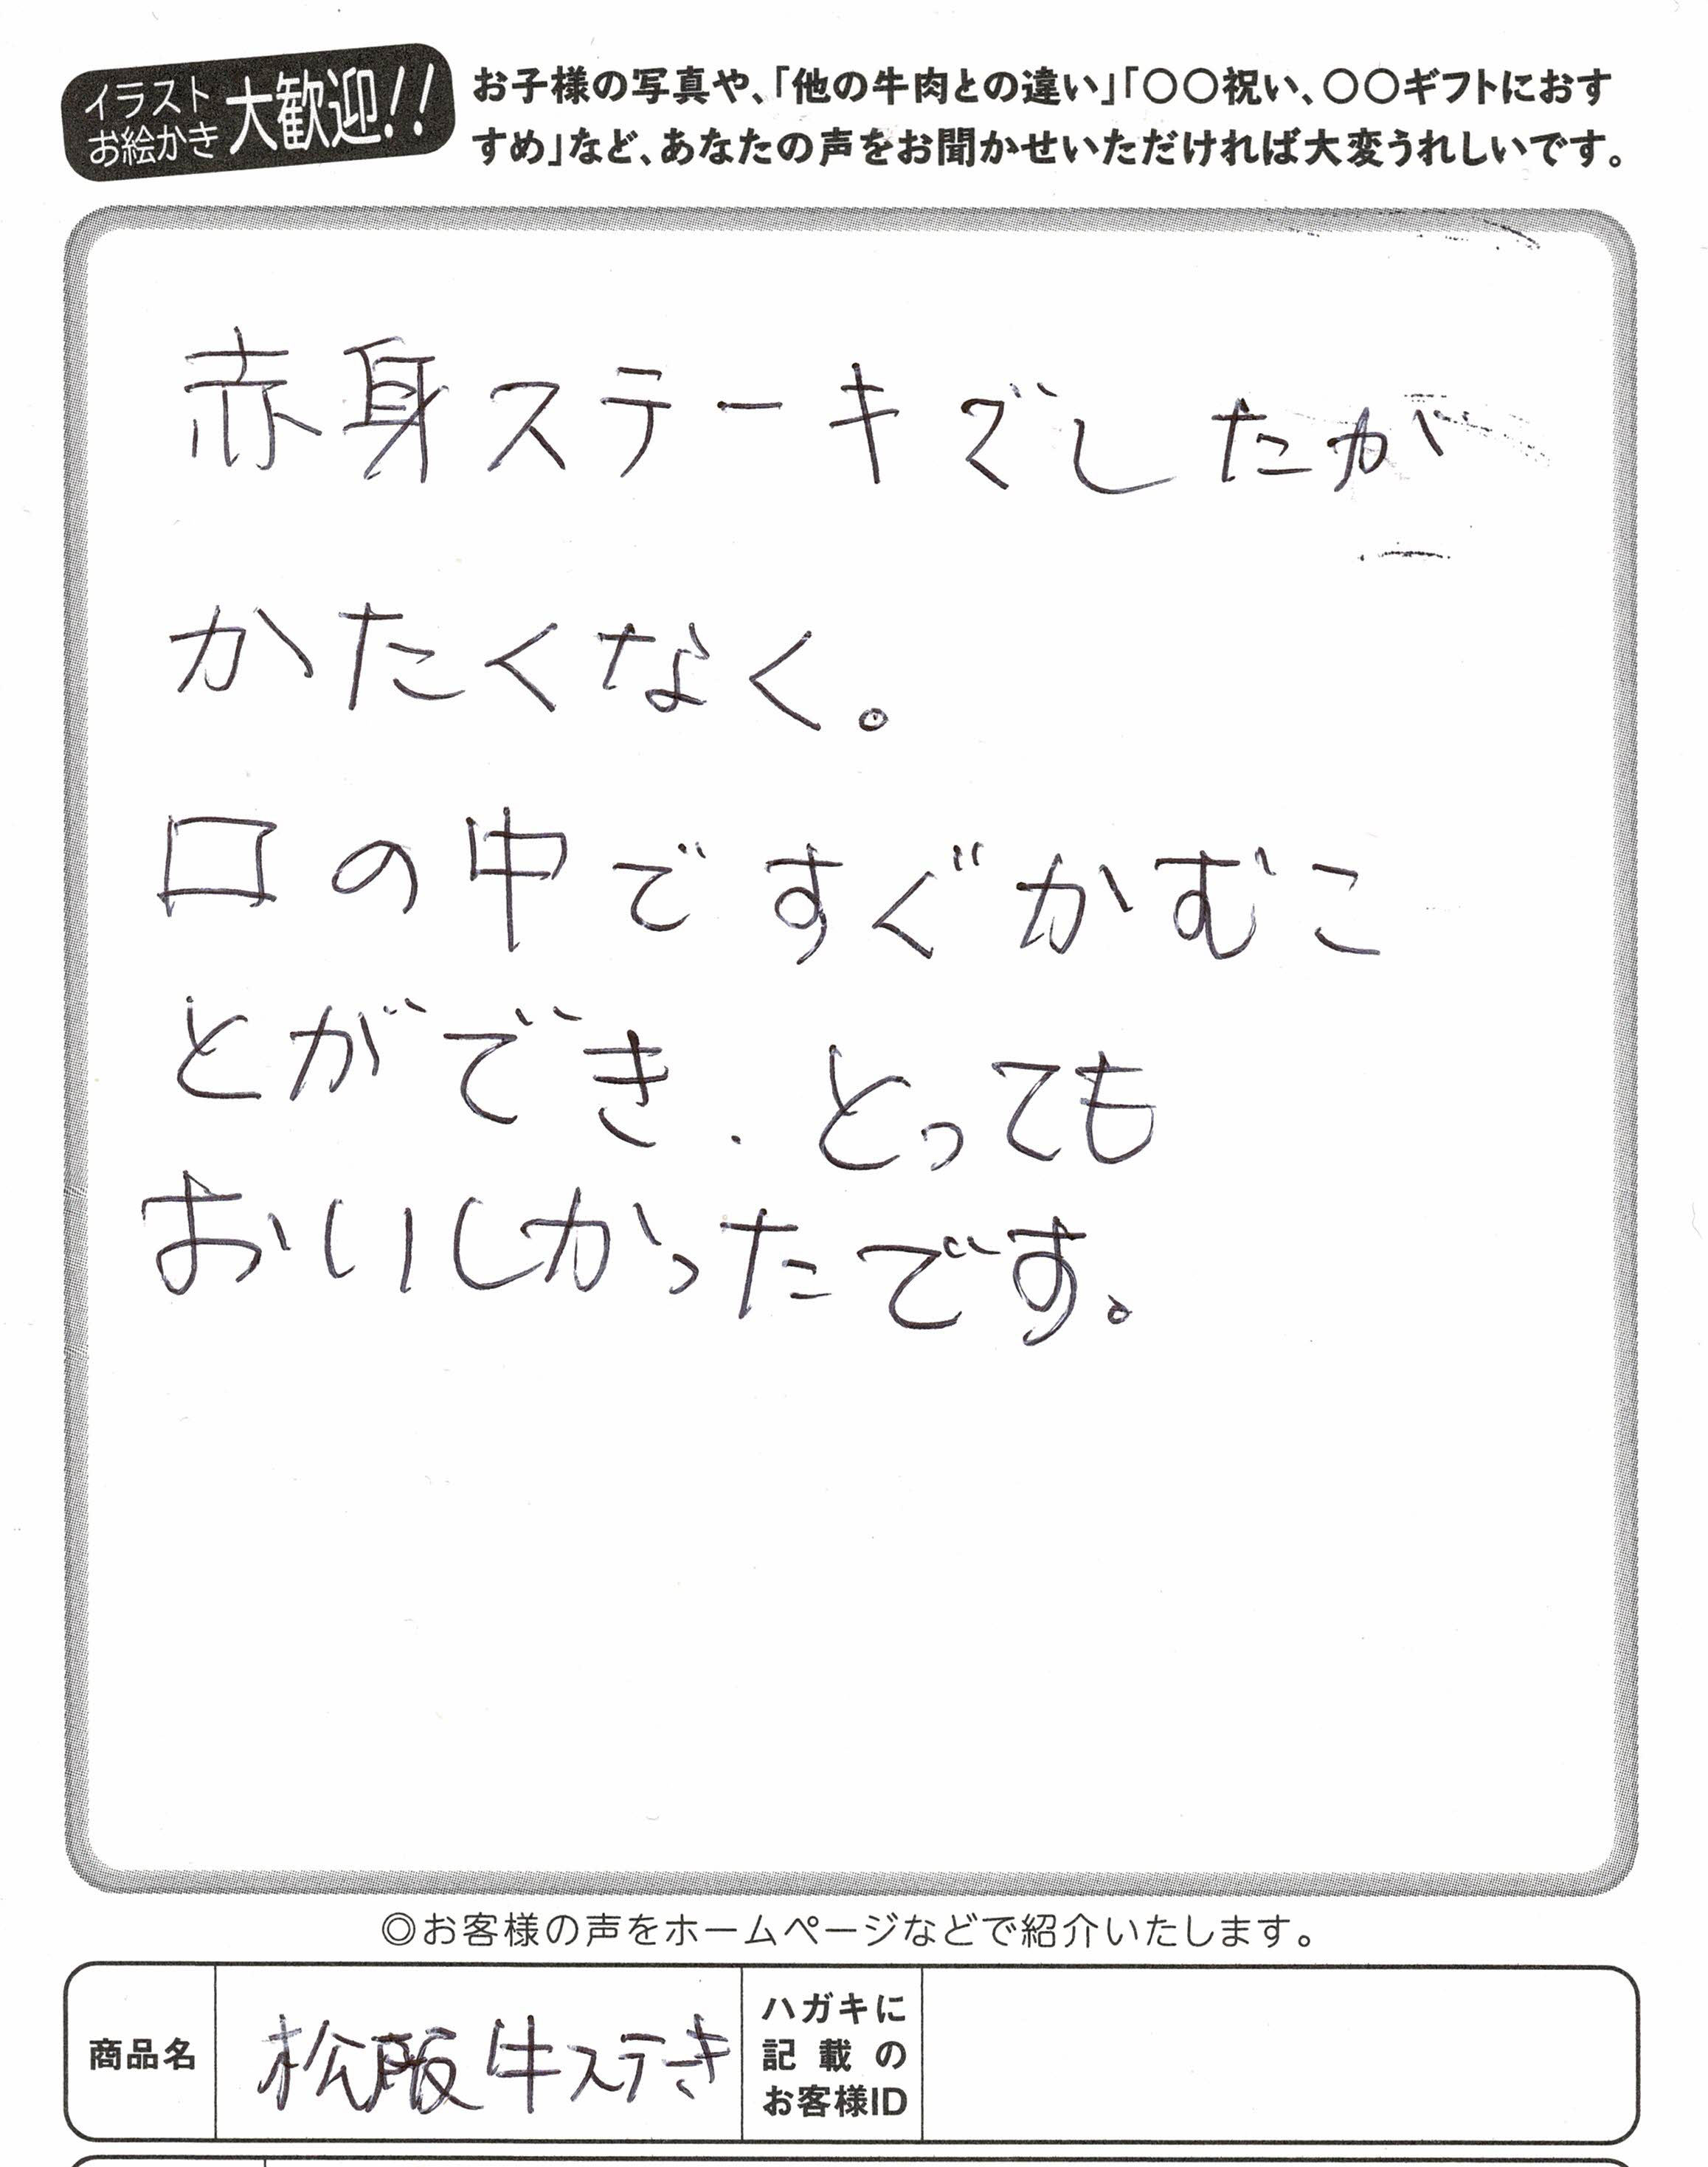 イラスト
お絵かき
大歓迎!!
お子様の写真や、「他の牛肉との違い」「〇〇祝い、〇〇ギフトにおす
すめ」など、あなたの声をお聞かせいただければ大変うれしいです。
赤身ステーキでしたが
かたくなく。
口の中ですぐかむこ
とができ、とっても
おいしかったです。
◎お客様の声をホームページなどで紹介いたします。
商品名
松阪牛ステーき
ハガキに
記載の
お客様ID